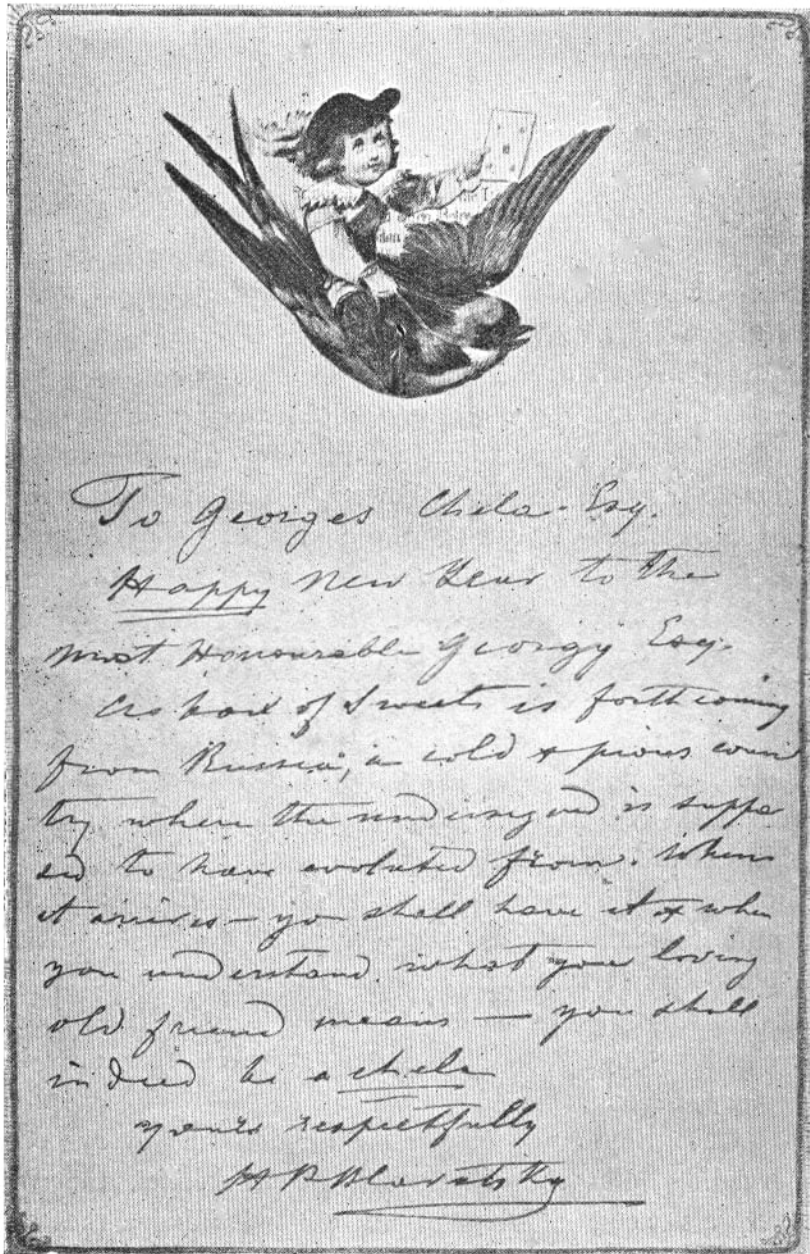 To Georges Chela Esq.
Happy New Year to the
most Honourable Georgy Esq.
A box of Sweets is forthcoming
from Russia, a cold & pious coun
try where the undersigned is suppo
sed to have evoluted from. When
it arrives — yo shall have it & when
you understand what your loving
old friend means — you shall
indeed be a chela
yours respectfully
HPBlavatsky